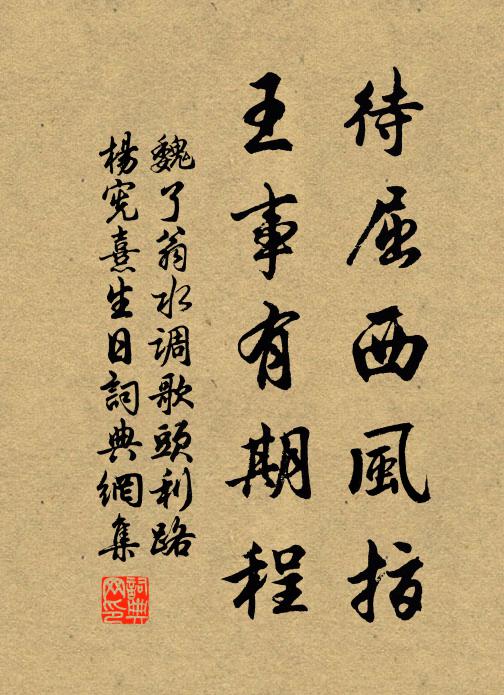 待屈西風指
王事有期程
魏了翁水调歌頭利路
楊宪熹生日詞典網集
詞典网印